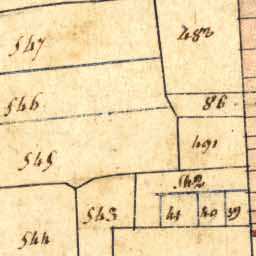 482
547
86
546
491
545
542
543
41 40 39
544